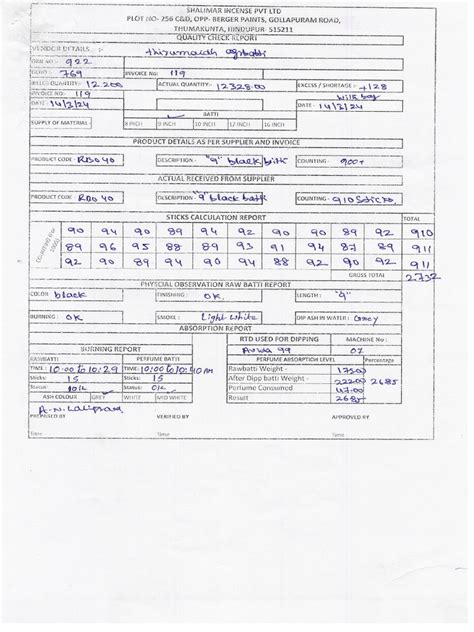 SHALIMAR INCENSE PVT LTD
PLOT NO- 256 C&D, OPP- BERGER PAINTS, GOLLAPURAM ROAD,
THUMAKUNTA, HINDUPUR- 515211
QUALITY CHECK REPORT
VENDOR DETAILS :- thirumalah agrbatti
GRN NO - 922
769 INVOICE NO: 119
BILLED QUANTITY:- 12200 ACTUAL QUANTITY:- 12328.00 EXCESS / SHORTAGE:- +128
INVOICE NO: 119
DATE: 14/3/24 DATE:- 14/3/24
BATTI
SUPPLY OF MATERIAL 8 INCH 9 INCH 10 INCH 16 INCH 17 INCH OTHER
PRODUCT DETAILS AS PER SUPPLIER AND INVOICE
PRODUCT CODE - RB040 DESCRIPTION- "9" black batti COUNTING- 900+
ACTUAL RECEIVED FROM SUPPLIER
PRODUCT CODE - RB040 DESCRIPTION- "9" black batti COUNTING- 910 Sticks
STICKS CALCULATION REPORT TOTAL
90 94 90 89 94 92 90 90 89 92 910
89 96 95 88 89 93 91 94 87 89 911
92 90 89 94 92 88 93 89 92 92 911
GROSS TOTAL 2732
PHYSCIAL OBSERVATION RAW BATTI REPORT
COLOR black FINISHING : OK LENGTH : "9"
BURNING : OK SMOKE : Light white DIP ASH IN WATER : Grey
ABSORPTION REPORT
BURNING REPORT RTD USED FOR DIPPING MACHINE No :
99 07
RAWBATTI PERFUME BATTI PERFUME ABSORPTION LEVEL Percentage
TIME: 10:00 to 10:29 TIME: 10:00 to 10:40 AM Rawbatti Weight - 1750
Sticks: 15 Sticks: 15 After Dipp batti Weight - 22200 2685
Status: OK Status: OK Perfume Consumed 47.00
ASH COLOUR GREY WHITE MID WHITE Result 2685
PREPARED BY VERIFIED BY APPROVED BY
Time Time Time